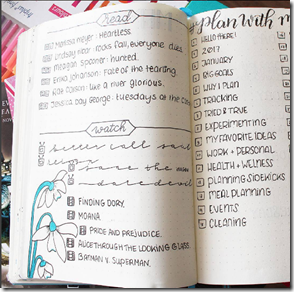 read
Marissa Meyer - Heartless
Lindsay Ribar - Rocks fall, everyone dies.
Megan Spooner: Hunted.
Erika Johansen: Fate of the Tearling
like a river glorious.
Jessica Day George: Tuesdays at the
watch
better call saul
the
daredevil
FINDING DORY.
MOANA.
PRIDE AND PREJUDICE.
ALICE THROUGH THE LOOKING GLASS.
BATMAN V. SUPERMAN.
#PLAN WITH
HELLO THERE!
2017
JANUARY
BIG GOALS
WHY I PLAN
TRACKING
TRIED & TRUE
EXPERIMENTING
MY FAVORITE IDEAS
WORK + PERSONAL
HEALTH + WELLNESS
PLANNING SIDEKICKS
MEAL PLANNING
EVENTS
CLEANING